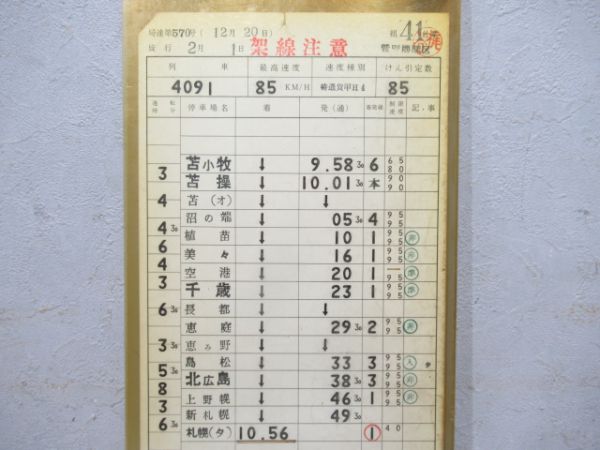 局達第570号 (12月20日)
施行 2月 1日 架線注意 組 41
列 車 最高速度 速度種別 けん引定数
4091 85 KM/H 85
運転時分 停車場名 着 発(通) 着発線 制限速度 記事
苫小牧 ↓ 9.58 30 6 65 80
3
苫操 ↓ 10.01 30 本 90 90
4
苫(オ) ↓ ↓
沼の端 ↓ 05 30 4 95 95
4 30
植苗 ↓ 10 1 95 95
6
美々 ↓ 16 1 95 95
4
空港 ↓ 20 1 95
3
千歳 ↓ 23 1 95 95
6 30
長都 ↓ ↓
恵庭 ↓ 29 30 2 95 95
3 30
恵み野 ↓ ↓
島松 ↓ 33 3 95 95
5 30
北広島 ↓ 38 30 3 95 95
8
上野幌 ↓ 46 30 1 95 95
3
新札幌 ↓ 49 30
6 30
札幌(タ) 10.56 1 40